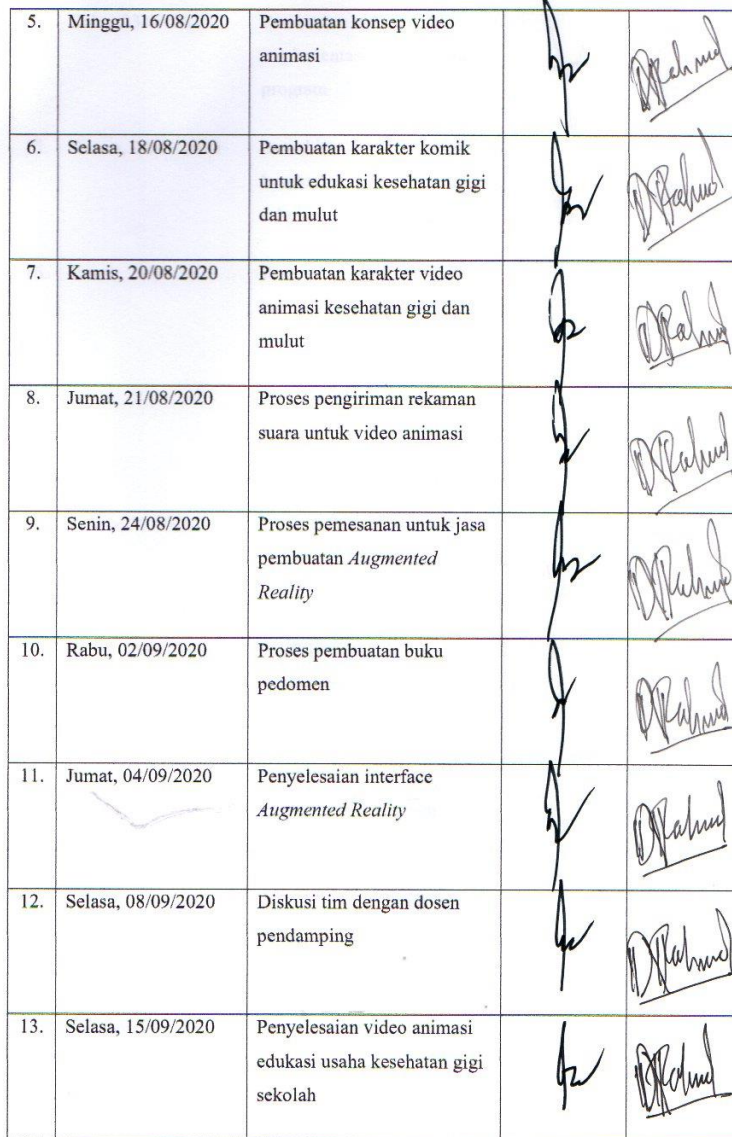 5. Minggu, 16/08/2020 Pembuatan konsep video
animasi
6. Selasa, 18/08/2020 Pembuatan karakter komik
untuk edukasi kesehatan gigi
dan mulut
7. Kamis, 20/08/2020 Pembuatan karakter video
animasi kesehatan gigi dan
mulut
8. Jumat, 21/08/2020 Proses pengiriman rekaman
suara untuk video animasi
9. Senin, 24/08/2020 Proses pemesanan untuk jasa
pembuatan Augmented
Reality
10. Rabu, 02/09/2020 Proses pembuatan buku
pedomen
11. Jumat, 04/09/2020 Penyelesaian interface
Augmented Reality
12. Selasa, 08/09/2020 Diskusi tim dengan dosen
pendamping
13. Selasa, 15/09/2020 Penyelesaian video animasi
edukasi usaha kesehatan gigi
sekolah